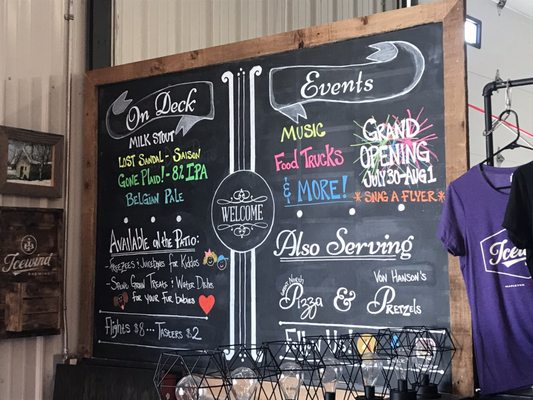 On Deck
Milk Stout
Lost Sandal - Saison
Gone Plaid! - 8% IPA
Belgian Pale
Available on the Patio:
for Kiddos
Treats & Water
for your fur babies
Flights $8 ... Tasters $2
WELCOME
Events
MUSIC
Food Trucks
& MORE!
GRAND
OPENING
JULY 30-AUG 1
* SNAG A FLYER *
Also Serving
Pizza & Von Hanson's
Pretzels
Icewind
BREWING
ICEWIND